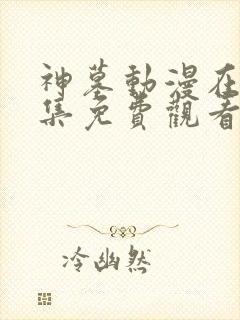 神墓動漫在
集免費觀看
冷幽然